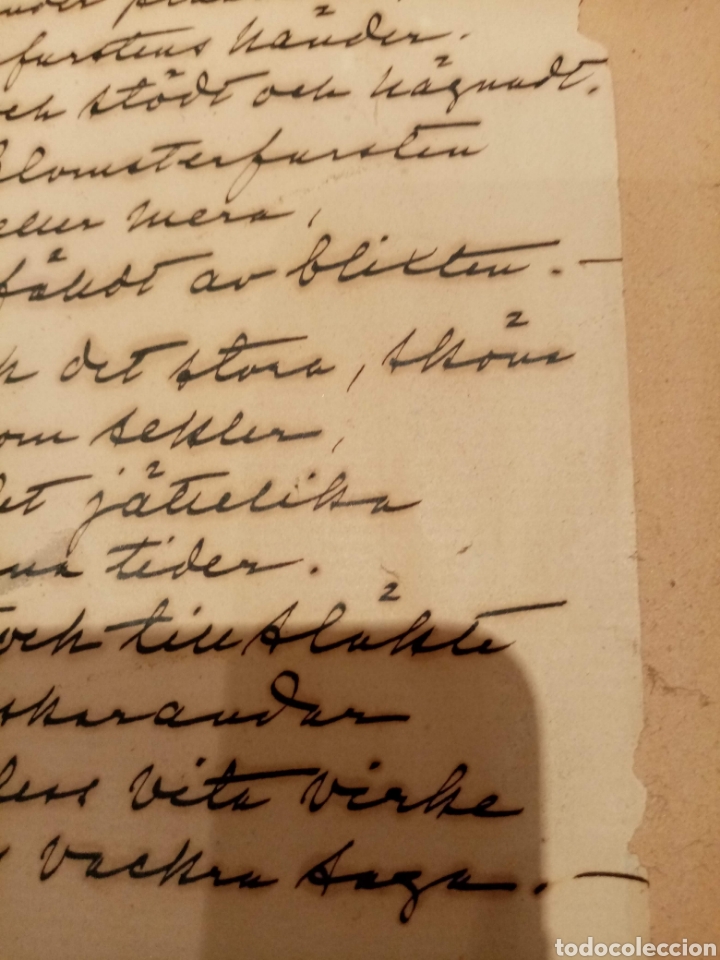 furstens händer.
och stödt och hägnadt.
Blomsterfursten
eller mera,
fäldt av blixten. —
det stora, sköna
om sekler,
det jättelika
tider.
och till släkte
skarandar
dess vita virke
vackra saga. —
todocoleccion